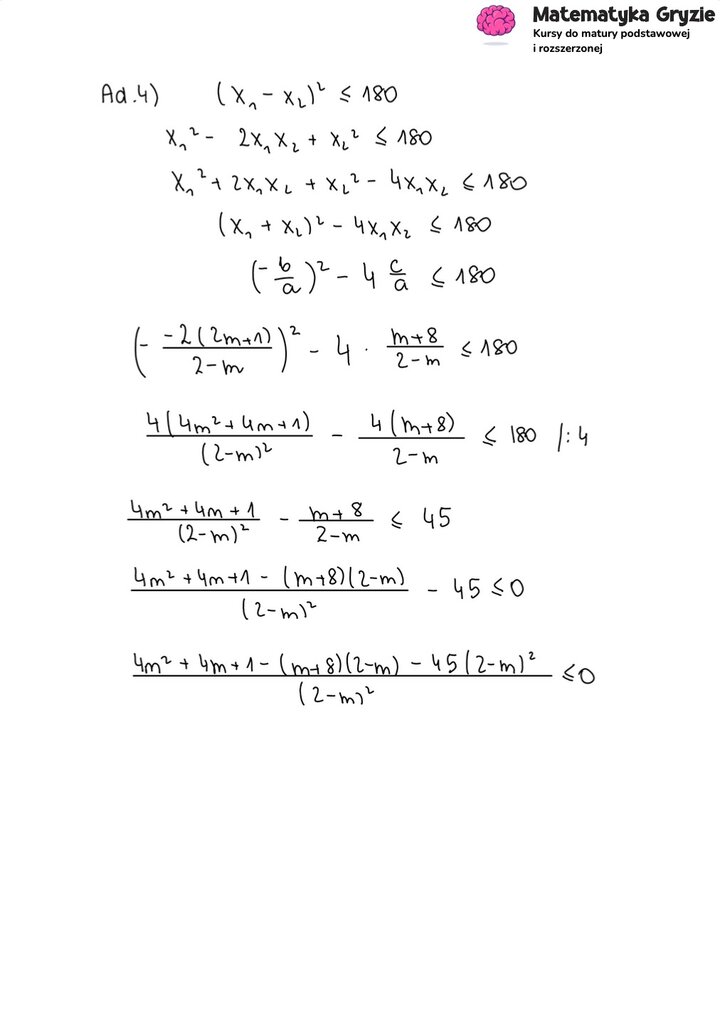 Matematyka Gryzie
Kursy do matury podstawowej
i rozszerzonej
Ad.4) (x₁ - x₂)² ≤ 180
x₁² - 2x₁x₂ + x₂² ≤ 180
x₁² + 2x₁x₂ + x₂² - 4x₁x₂ ≤ 180
(x₁ + x₂)² - 4x₁x₂ ≤ 180
(- b/a)² - 4 c/a ≤ 180
(- -2(2m+1)/2-m)² - 4 · m+8/2-m ≤ 180
4(4m²+4m+1)/(2-m)² - 4(m+8)/2-m ≤ 180 /:4
4m²+4m+1/(2-m)² - m+8/2-m ≤ 45
4m²+4m+1-(m+8)(2-m)/(2-m)² - 45 ≤ 0
4m²+4m+1-(m+8)(2-m)-45(2-m)²/(2-m)² ≤ 0